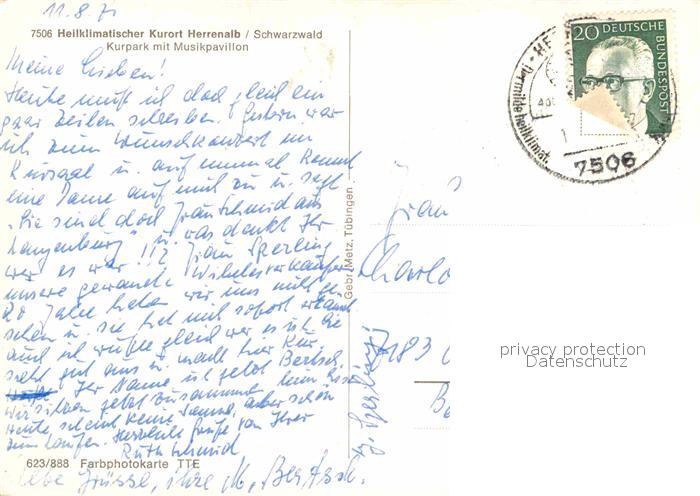 11.8.71
7506 Heilklimatischer Kurort Herrenalb / Schwarzwald
Kurpark mit Musikpavillon
Meine Lieben!
Heute muß ich doch gleich ein
paar Zeilen schreiben. Gestern war
ich zum Wunschkonzert im
Kursaal u. auf einmal kommt
eine Dame auf mich zu u. sagt
"Sie sind doch Frau Schmid aus
Langenburg" u. was denkt Ihr
wer es war!!? Frau Sperling
unsere gewandte
20 Jahre haben wir uns nicht ge-
sehen u. sie hat mich sofort erkannt
auch ich wußte gleich wer es ist. Sie
sieht gut aus u. macht hier Kur.
Ihr Name ist jetzt Bertsch.
Wir sitzen jetzt zusammen beim
Heute scheint keine Sonne, aber schön
zum Laufen. Herzliche Grüße von Ihrer
Ruth Schmid
623/888 Farbphotokarte TTE
Liebe Grüsse, Ihre M. Bertsch.
Gebr. Metz, Tübingen
20
DEUTSCHE
BUNDESPOST
7506
heilklimat.
Frau
7183
privacy protection
Datenschutz